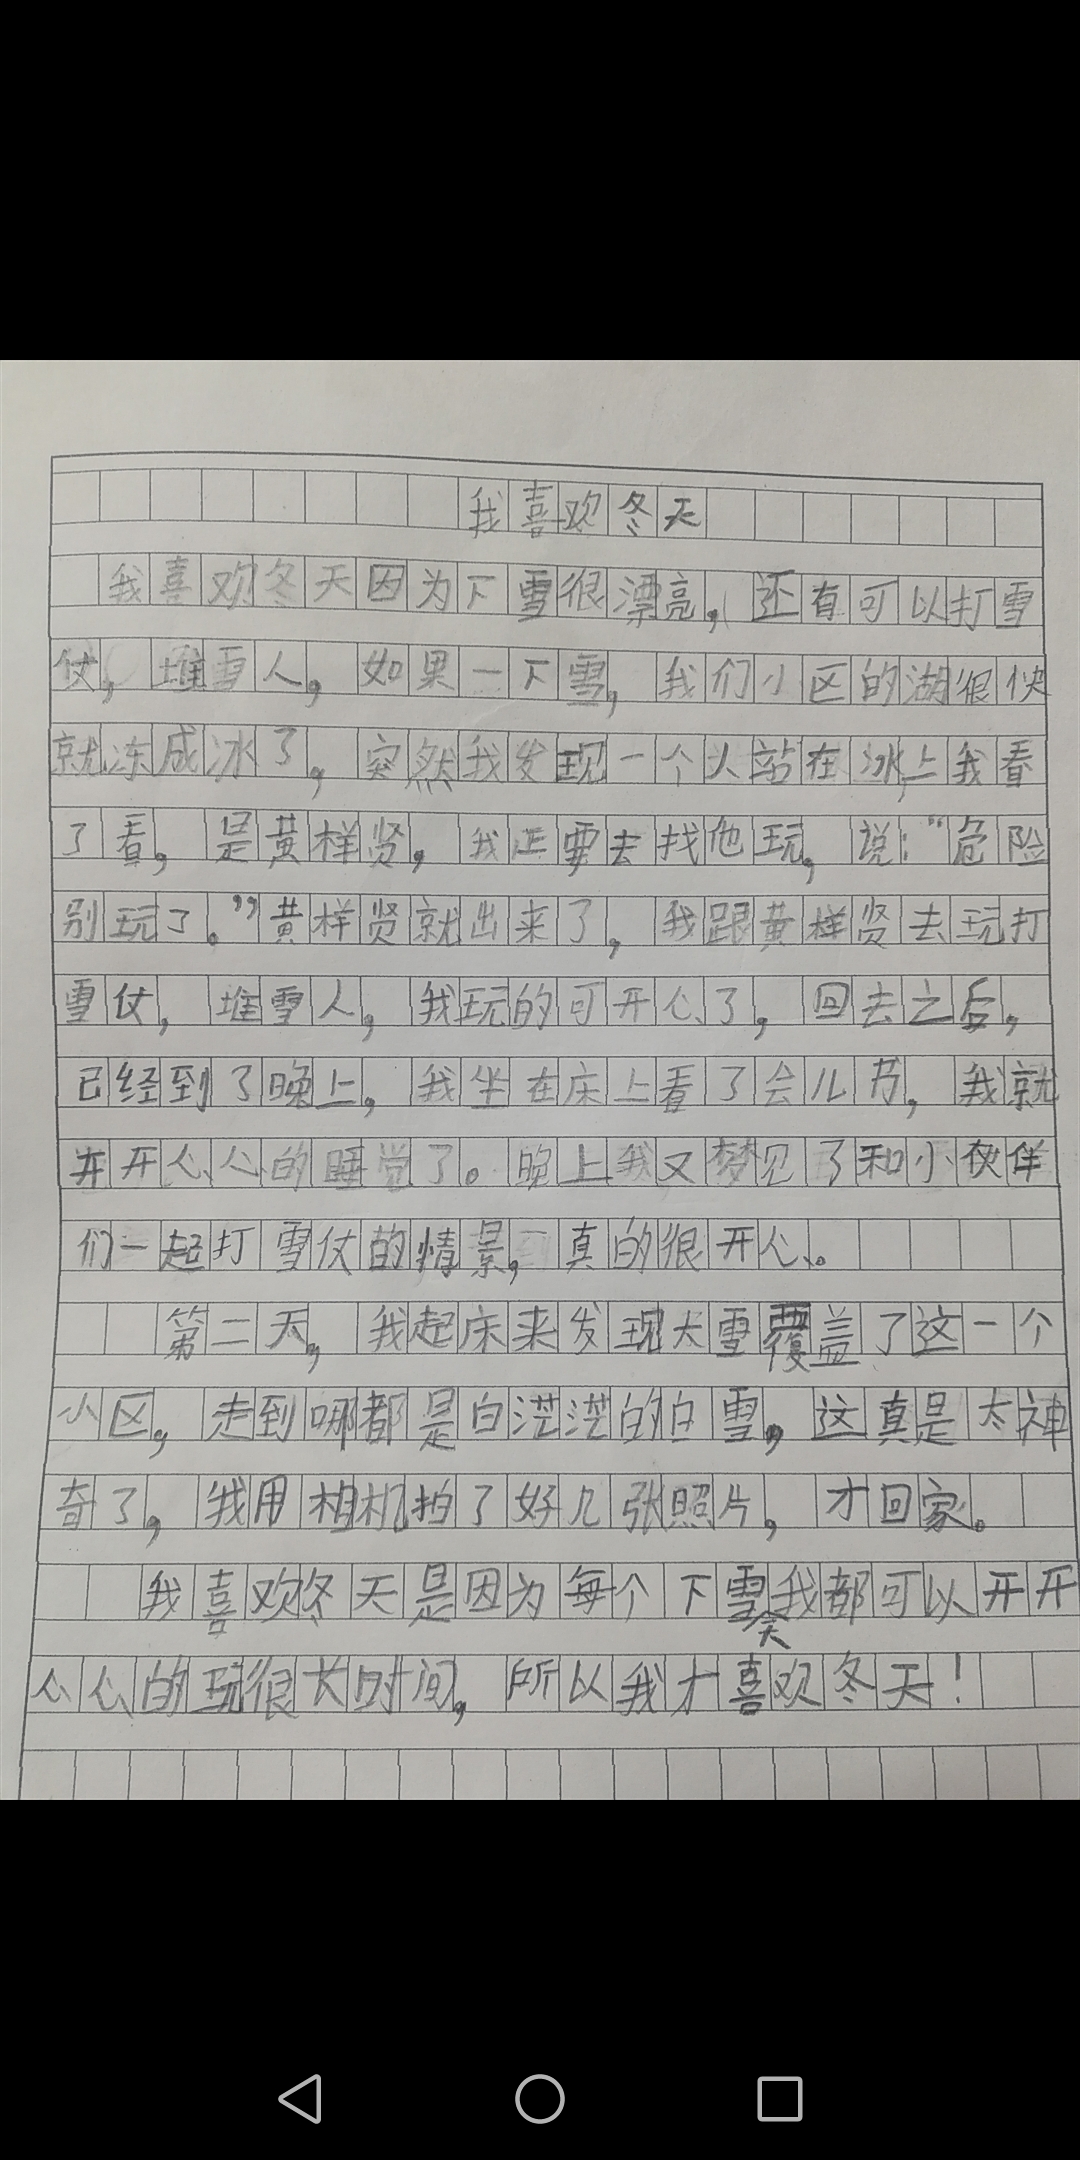 我喜欢冬天
我喜欢冬天因为下雪很漂亮，还有可以打雪
仗，堆雪人，如果一下雪，我们小区的湖很快
就冻成冰了，突然我发现一个人站在冰上，我看
了看，是黄样贤，我正要去找他玩，说：“危险
别玩了。”黄样贤就出来了，我跟黄样贤去玩打
雪仗，堆雪人，我玩的可开心了，回去之后，
已经到了晚上，我坐在床上看了会儿书，我就
开开心心的睡觉了。晚上我又梦见了和小伙伴
们一起打雪仗的情景，真的很开心。
第二天，我起床来发现大雪覆盖了这一个
小区，走到哪都是白茫茫的白雪，这真是太神
奇了，我用相机拍了好几张照片，才回家。
我喜欢冬天是因为每个下雪天我都可以开开
心心的玩很长时间，所以我才喜欢冬天！